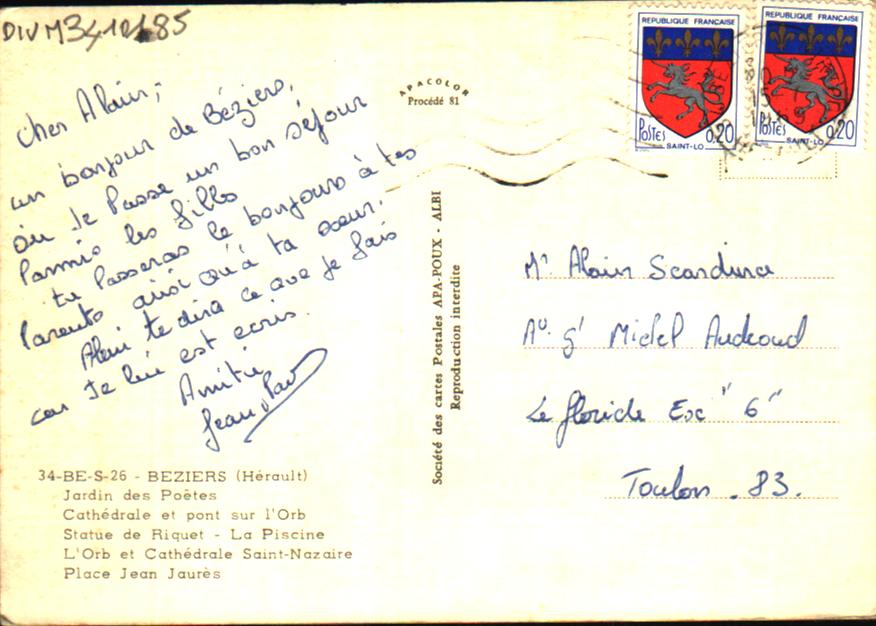 DIVM3412185
Cher Alain,
un bonjour de Béziers,
où Je Passe un bon séjour
Parmis les filles
tu Passeras le bonjours à tes
Parents ainsi qu'à ta sœur.
Alain te dira ce que je fais
car Je lui est ecris.
Amitié
Jean Paul
APACOLOR
Procédé 81
REPUBLIQUE FRANÇAISE
POSTES 0,20
SAINT-LO
REPUBLIQUE FRANÇAISE
POSTES 0,20
SAINT-LO
Société des cartes Postales APA-POUX - ALBI
Reproduction interdite
Mr Alain Scandura
Av. gl Michel Audeoud
Le floride Esc "6"
Toulon . 83.
34-BE-S-26 - BEZIERS (Hérault)
Jardin des Poètes
Cathédrale et pont sur l'Orb
Statue de Riquet - La Piscine
L'Orb et Cathédrale Saint-Nazaire
Place Jean Jaurès